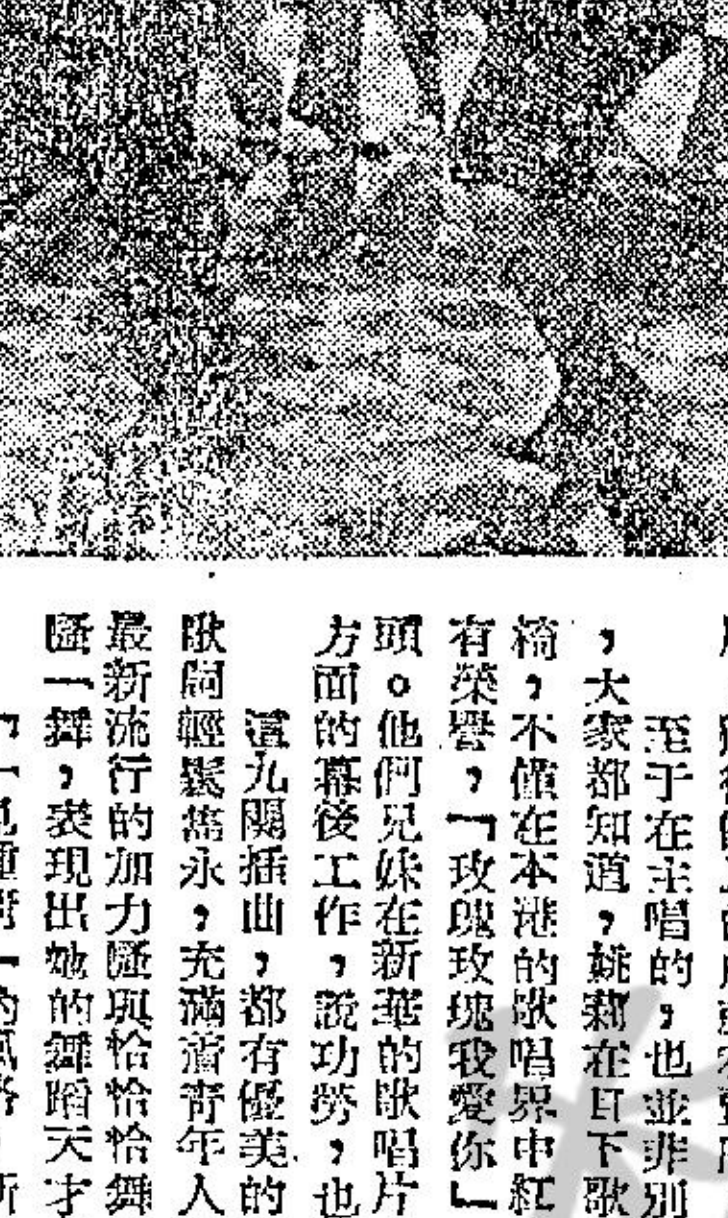 至于在主唱的，也並非別
，大家都知道，姚莉在目下歌
椅，不僅在本港的歌唱界中紅
有榮譽，「玫瑰玫瑰我愛你」
頭。他們兄妹在新華的歌唱片
方面的幕後工作，說功勞，也
這九闋插曲，都有優美的
歌詞輕鬆雋永，充滿着青年人
最新流行的加力騷與恰恰恰舞
騷一舞，表現出她的舞蹈天才